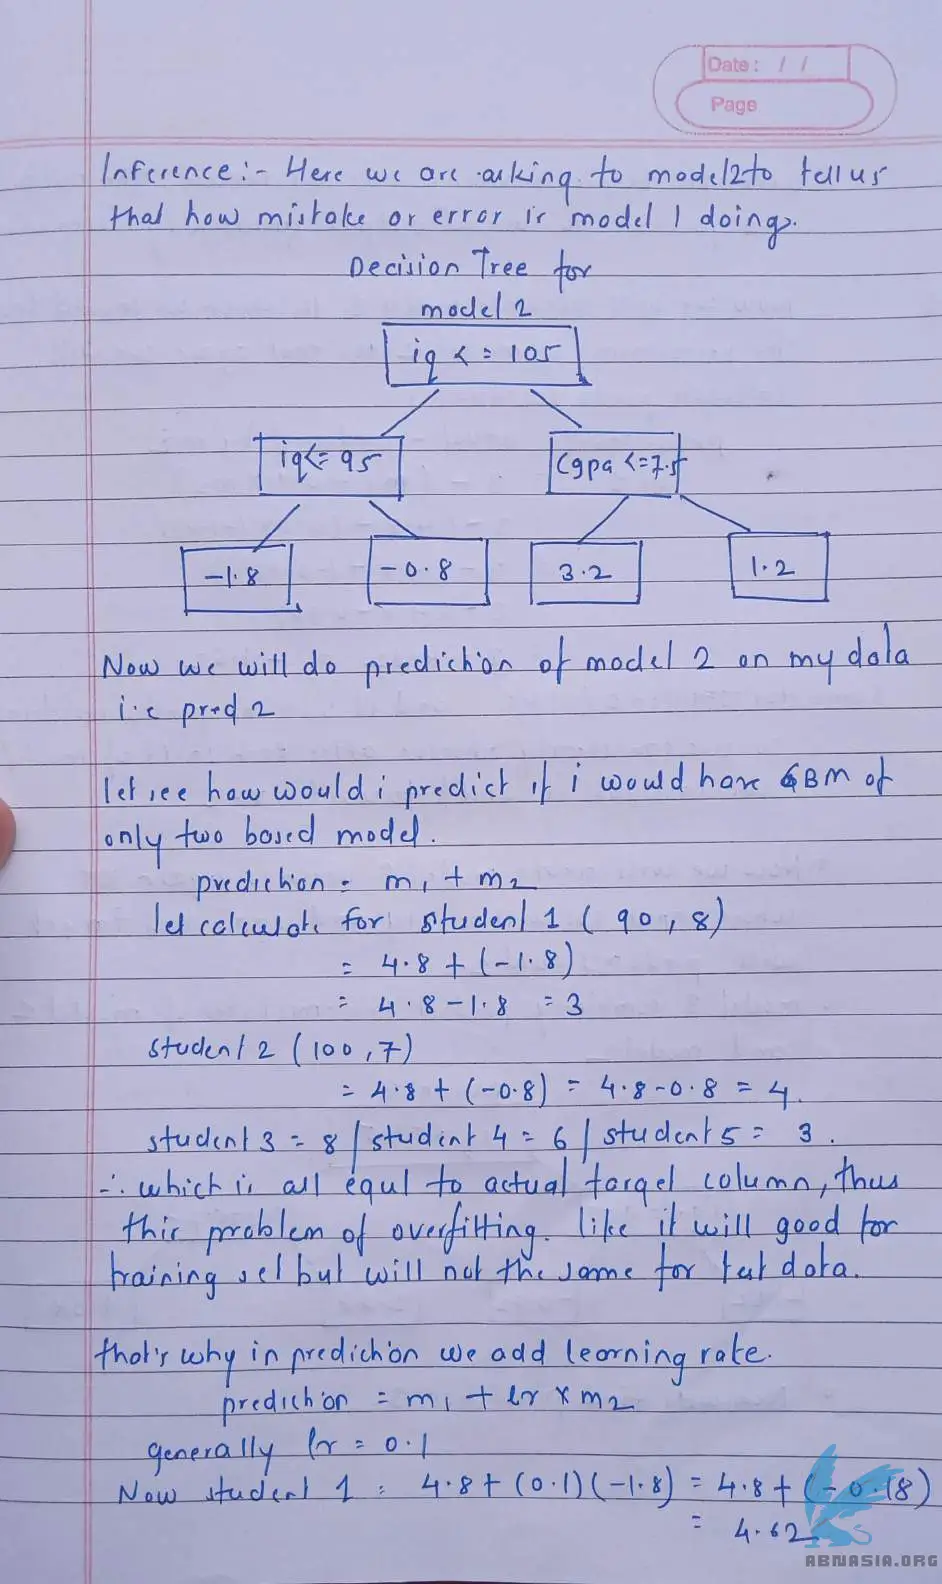 Date : / /
Page
Inference :- Here we are asking to model2 to tell us
that how mistake or error is model 1 doing.
Decision Tree for
model 2
iq <= 105
iq <= 95
Cgpa <=7.5
-1.8
-0.8
3.2
1.2
Now we will do prediction of model 2 on my data
i.e pred 2
let see how would i predict if i would have GBM of
only two based model.
prediction = m1 + m2
let calculate for student 1 ( 90, 8)
= 4.8 + (-1.8)
= 4.8 - 1.8 = 3
student 2 (100, 7)
= 4.8 + (-0.8) = 4.8 - 0.8 = 4.
student 3 = 8 / student 4 = 6 / student 5 = 3.
∴ which is all equl to actual target column, thus
this problem of overfitting. like it will good for
training set but will not the same for test data.
that's why in prediction we add learning rate.
prediction = m1 + lr x m2
generally lr = 0.1
Now student 1 = 4.8 + (0.1) (-1.8) = 4.8 + (-0.18)
= 4.62
ABNASIA.ORG